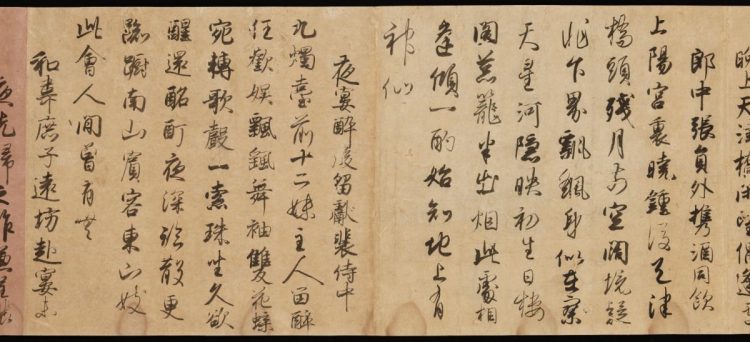 上天津橋閑望偶逢
郎中張員外携酒同飲
上陽宮裏曉鐘後天津
橋頭殘月前空闊境疑
非下界飄颻身似在寥
天星河隱映初生日樓
閣葱籠半出烟此處相
逢傾一酌始知地上有
神仙
夜宴醉後留獻裴侍中
九燭臺前十二姝主人留醉
任歡娛飄飖舞袖雙飛蝶
宛轉歌聲一索珠坐久欲
醒還酩酊夜深臨散更
踟躕南山賓客東山妓
此會人間曾有無
和韋庶子遠坊赴宴未
夜先歸之作兼呈裴